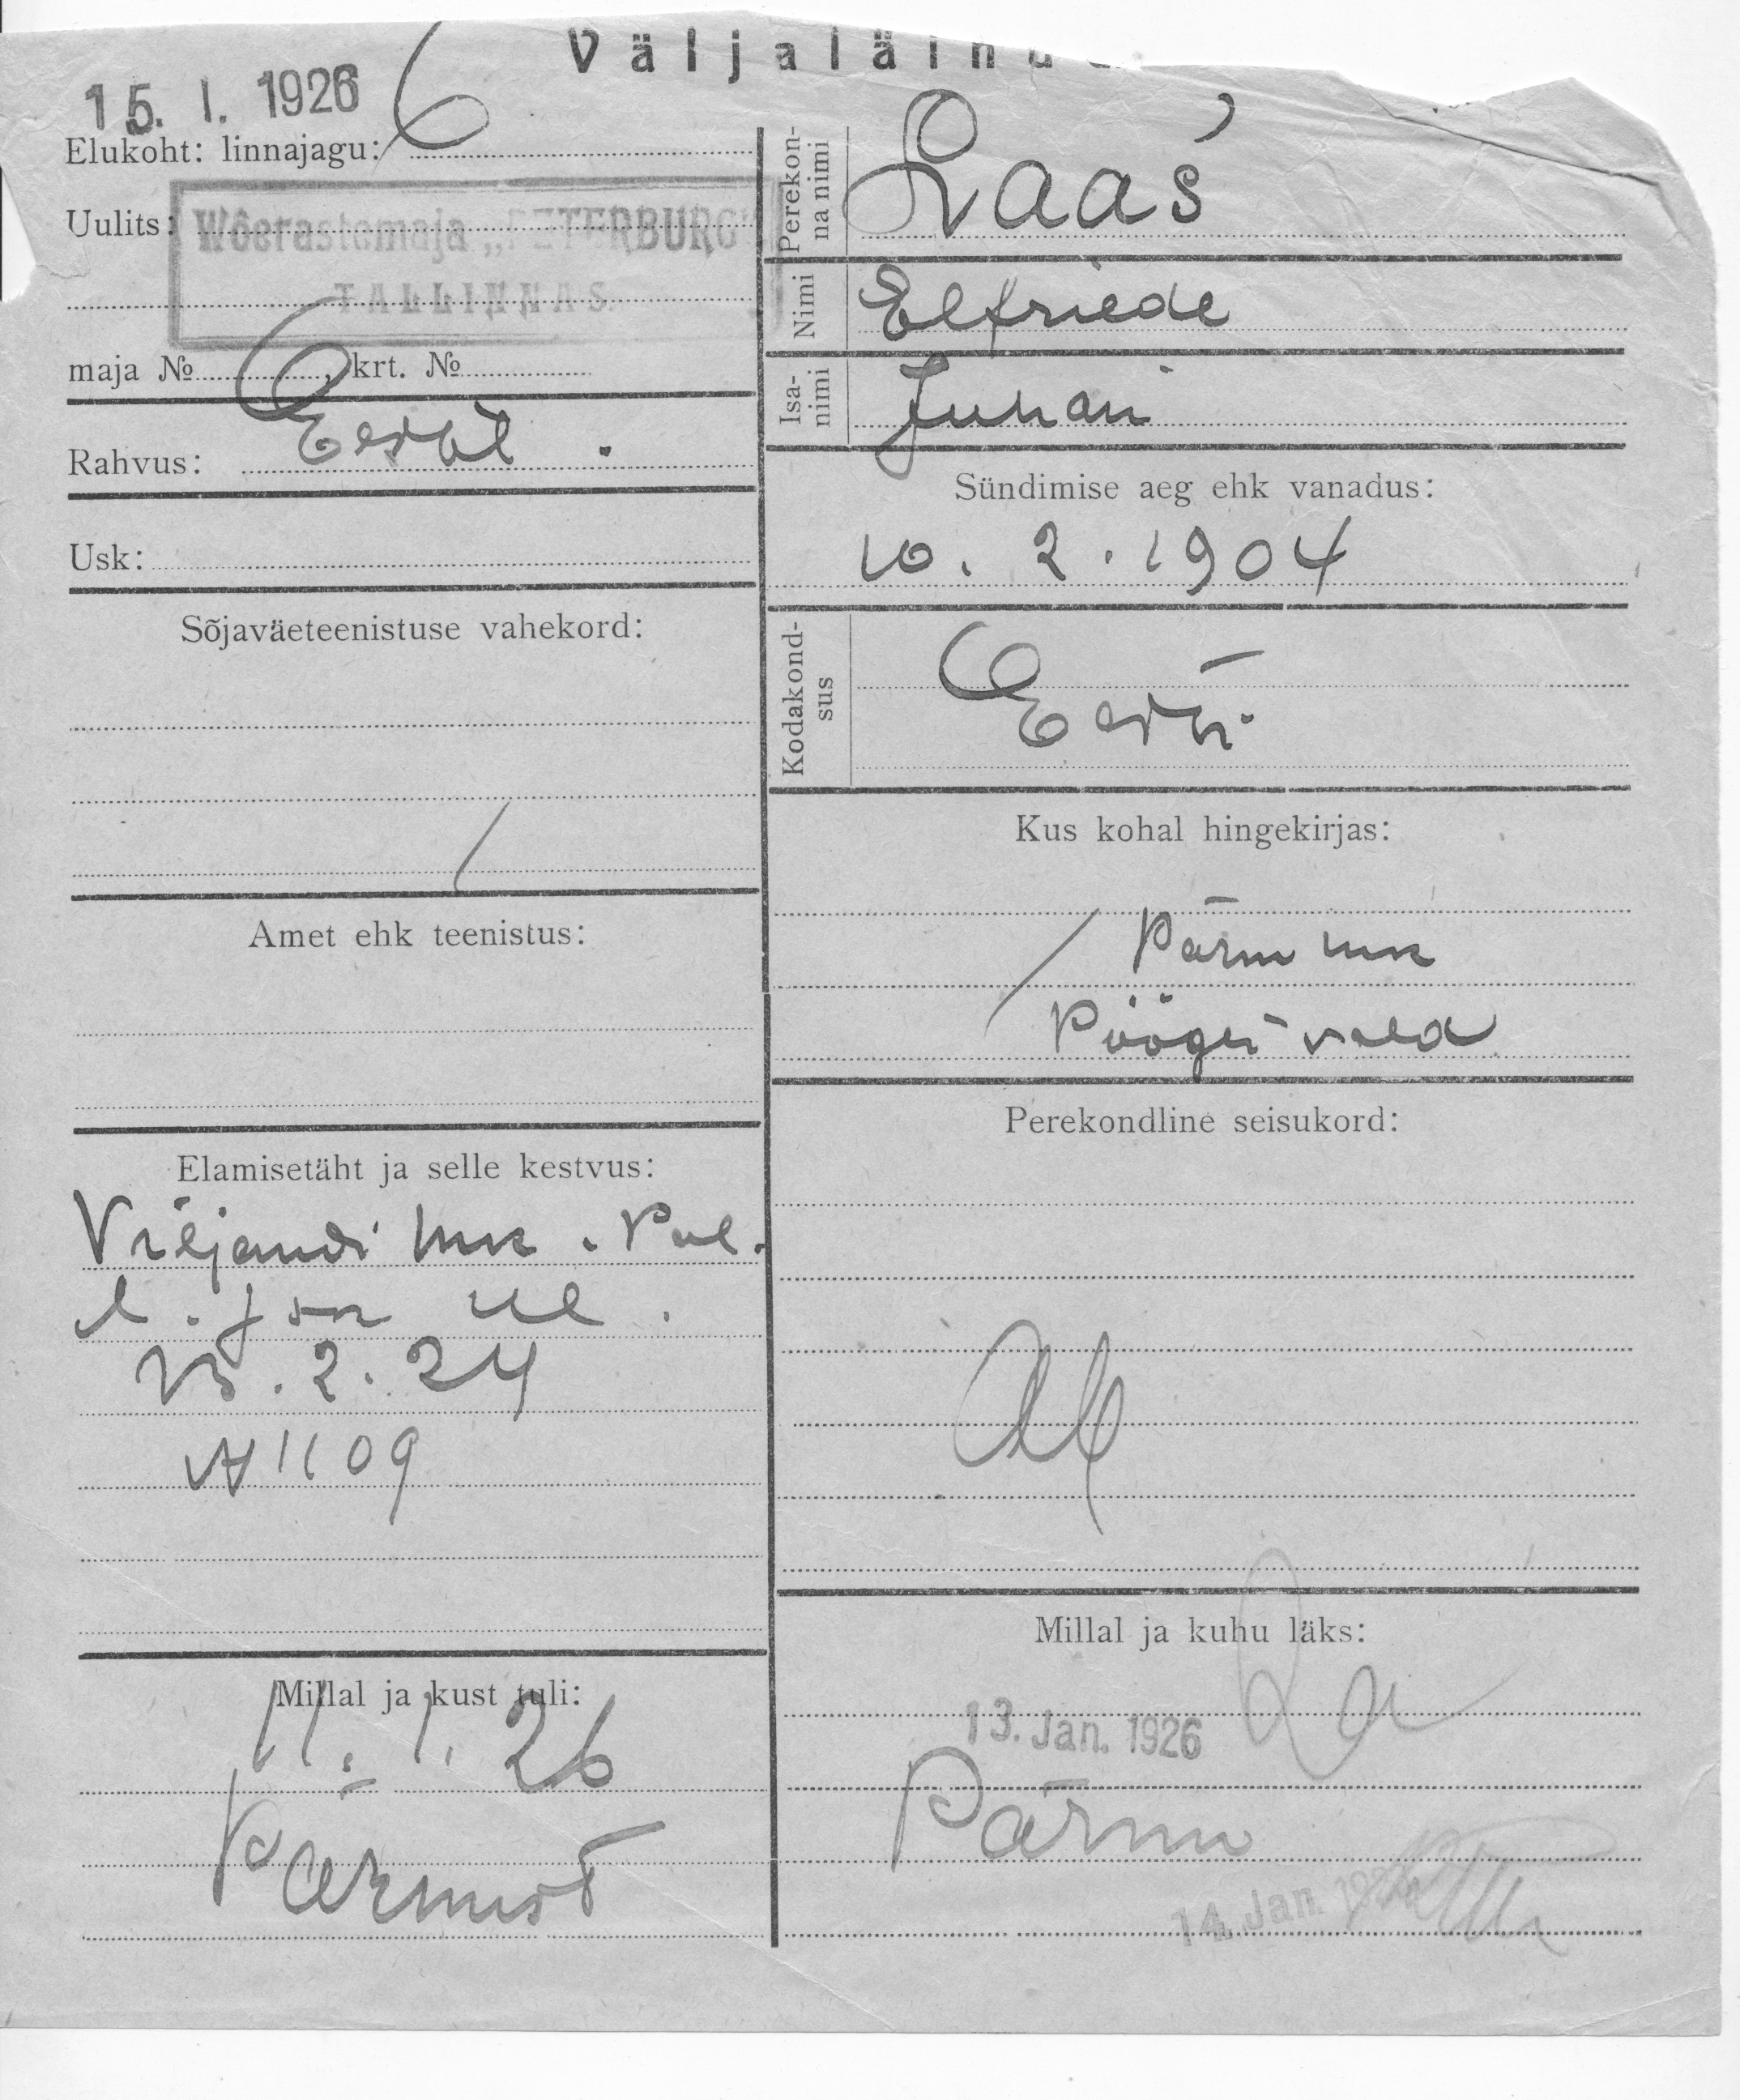 Väljaläinud
15. I. 1926
6
Elukoht: linnajagu:
Uulits:
Wõerastemaja „PETERBURG"
TALLINNAS.
maja № , krt. №
Rahvus: Eesti.
Usk:
Sõjaväeteenistuse vahekord:
Amet ehk teenistus:
Elamisetäht ja selle kestvus:
Viljandi mk. Pol.
23.2.24
№ 1109
Millal ja kust tuli:
11.1.26
Pärnust
Perekonna nimi
Laas
Nimi
Elfriede
Isanimi
Juhan
Sündimise aeg ehk vanadus:
10. 2. 1904
Kodakondsus
Eesti
Kus kohal hingekirjas:
Pärnu mk
Pöögli vald
Perekondline seisukord:
Millal ja kuhu läks:
13. Jan. 1926
Pärnu
14. Jan. 1926